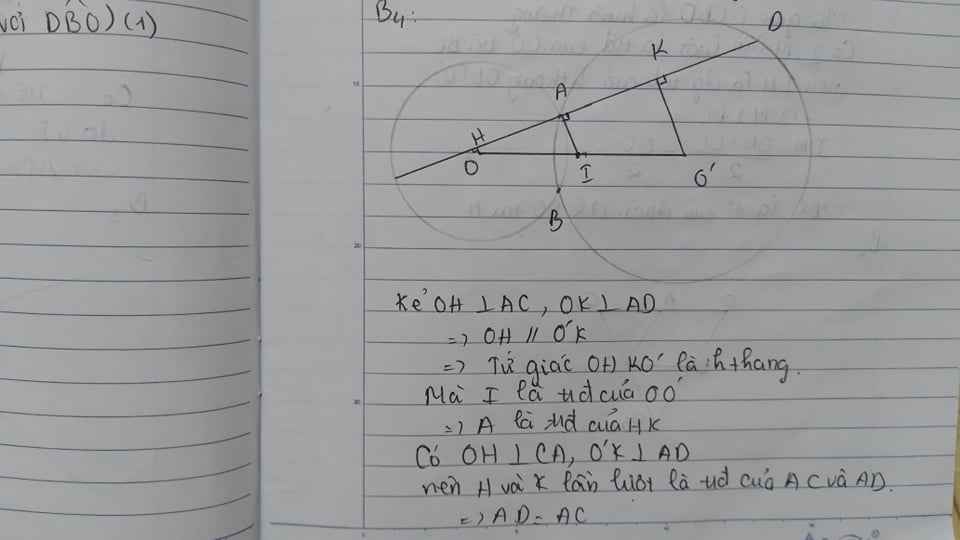 với DBO) (1)
B4:
D
K
A
H
O
I
O'
B
Kẻ OH ⊥ AC, OK ⊥ AD
=> OH // O'K
=> Tứ giác OHKO' là hthang.
Mà I là tđ của OO'
=> A là tđ của HK
Có OH ⊥ CA, O'K ⊥ AD
nên H và K lần lượt là tđ của AC và AD.
=> AD = AC